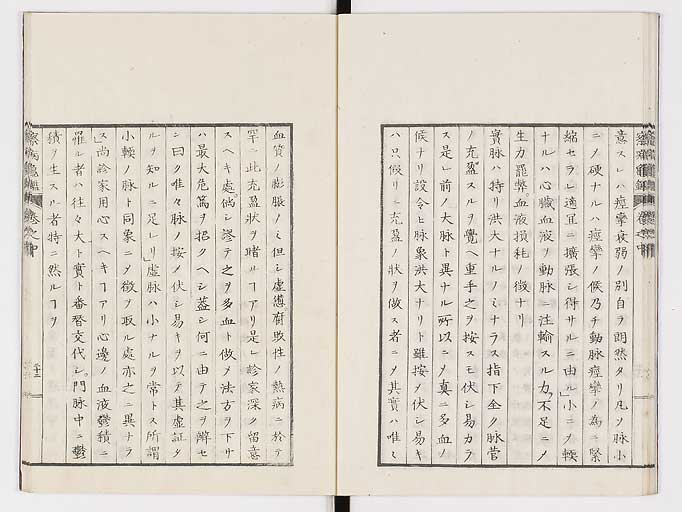 意スレハ痙攣衰弱ノ別自ラ朗然タリ凡ソ脉小
ニ〆硬ナルハ痙攣ノ候乃チ動脉痙攣ノ為ニ緊
縮セラレ適宜ニ擴張シ得サルニ由ル」小ニ〆軟
ナルハ心臓血液ヲ動脉ニ注輸スル力不足ニ〆
生力罷弊血液損耗ノ徴ナリ
實脉ハ特リ洪大ナルノミナラス指下全ク脉管
ノ充盈スルヲ覺ヘ重手之ヲ按スモ伏シ易カラ
ス是レ前ノ大脉ト異ナル所以ニ〆真ニ多血ノ
候ナリ設令ヒ脉象洪大ナリト雖按〆伏シ易キ
ハ只假リニ充盈ノ状ヲ做ス者ニ〆其實ハ唯々
血質ノ膨脹ノミ但シ虚憊腐敗性ノ熱病ニ於テ
罕ニ此充盈状ヲ睹ルヿアリ是レ診家深ク留意
スヘキ處倘シ謬テ之ヲ多血ト做〆法方ヲ下サ
ハ最大危篤ヲ招クヘシ蓋シ何ニ由テ之ヲ辨セ
ン曰ク唯々脉ノ按〆伏シ易キヲ以テ其虚証タ
ルヲ知ルニ足レリ」虚脉ハ小ナルヲ常トス所謂
小軟ノ脉ト同象ニ〆徴ヲ取ル處亦之ニ異ナラ
ス」尚診家用心スヘキヿアリ心邊ノ血液鬱積ニ
罹ル者ハ往々大ト實ト番替交代シ門脉中ニ鬱
積ヲ生スル者特ニ然ルヿヲ
卷之中